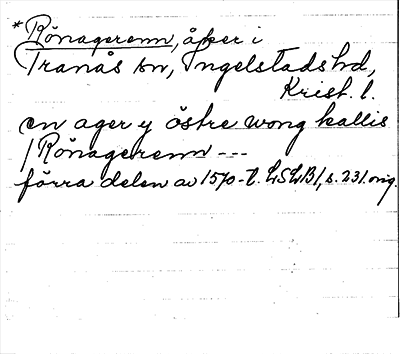 *Rönagerenn, åker i
Tranås sn, Ingelstads hd,
Krist. l.
en ager y östre wong kallis
/Rönagerenn ---
förra delen av 1570-t. LSLB1, s. 231. orig.